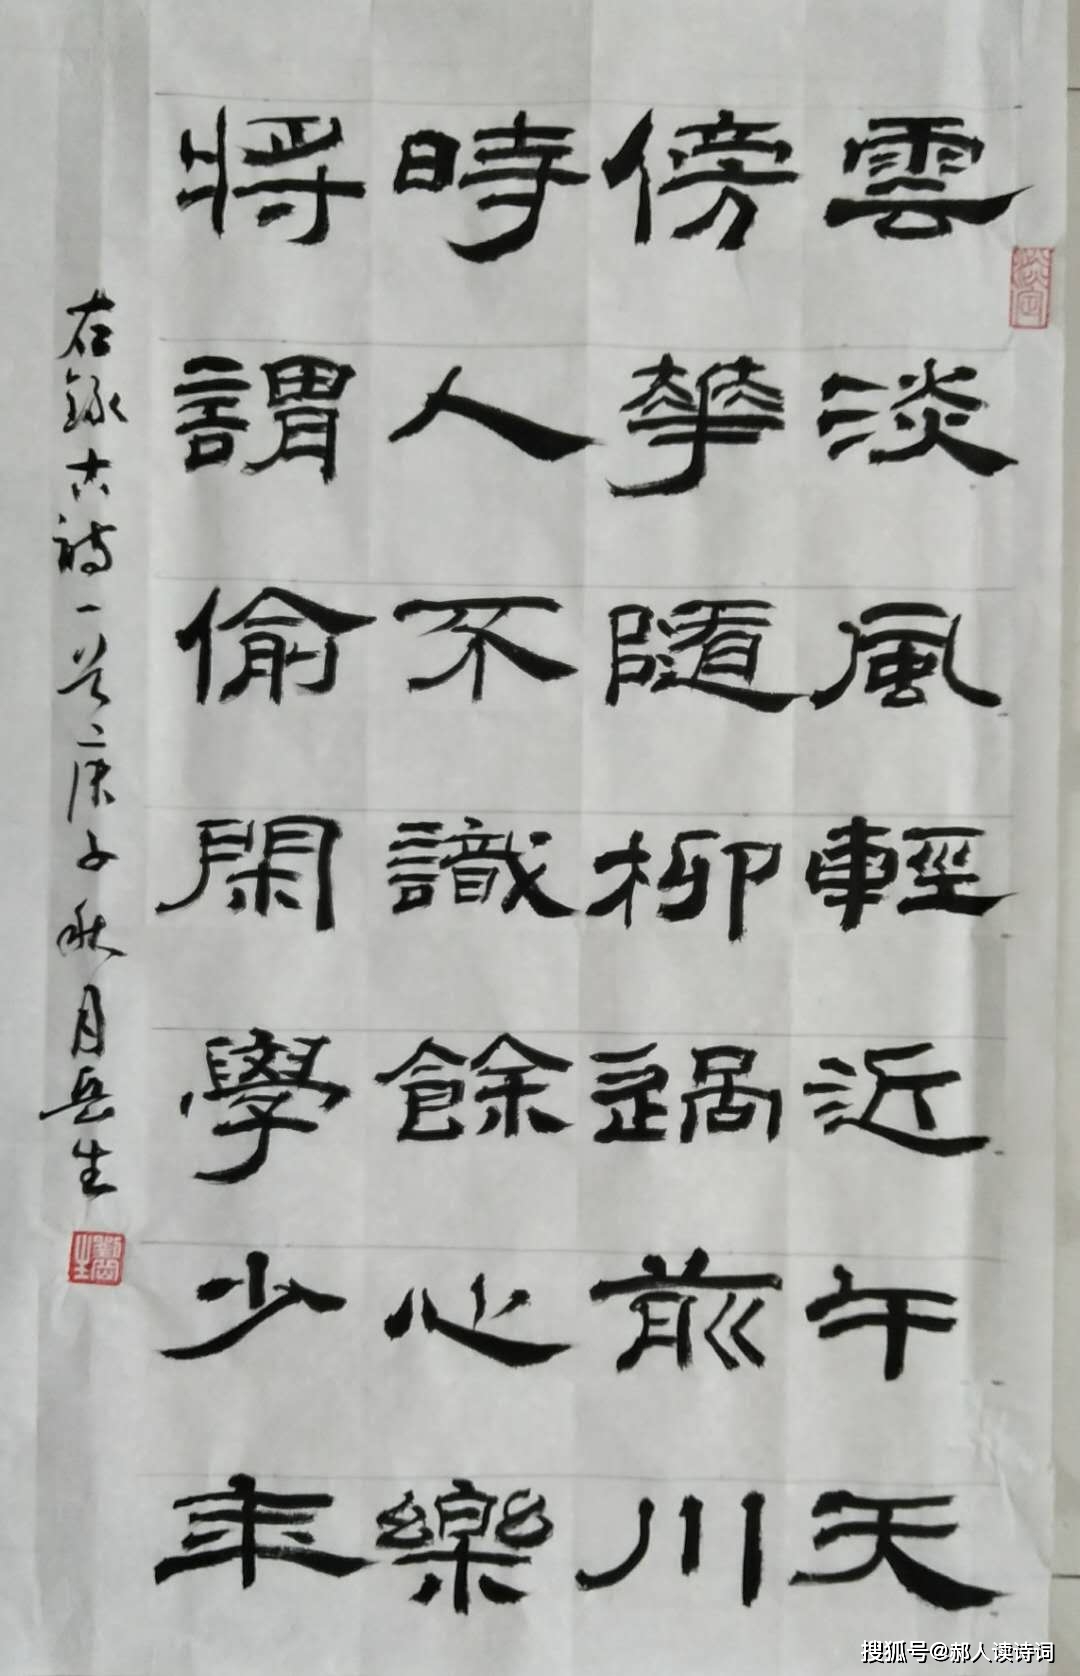 雲淡風輕近午天
傍華隨柳過前川
時人不識餘心樂
將謂偷閑學少年
右錄古詩一首庚子秋月岳生
搜狐号@郝人读诗词